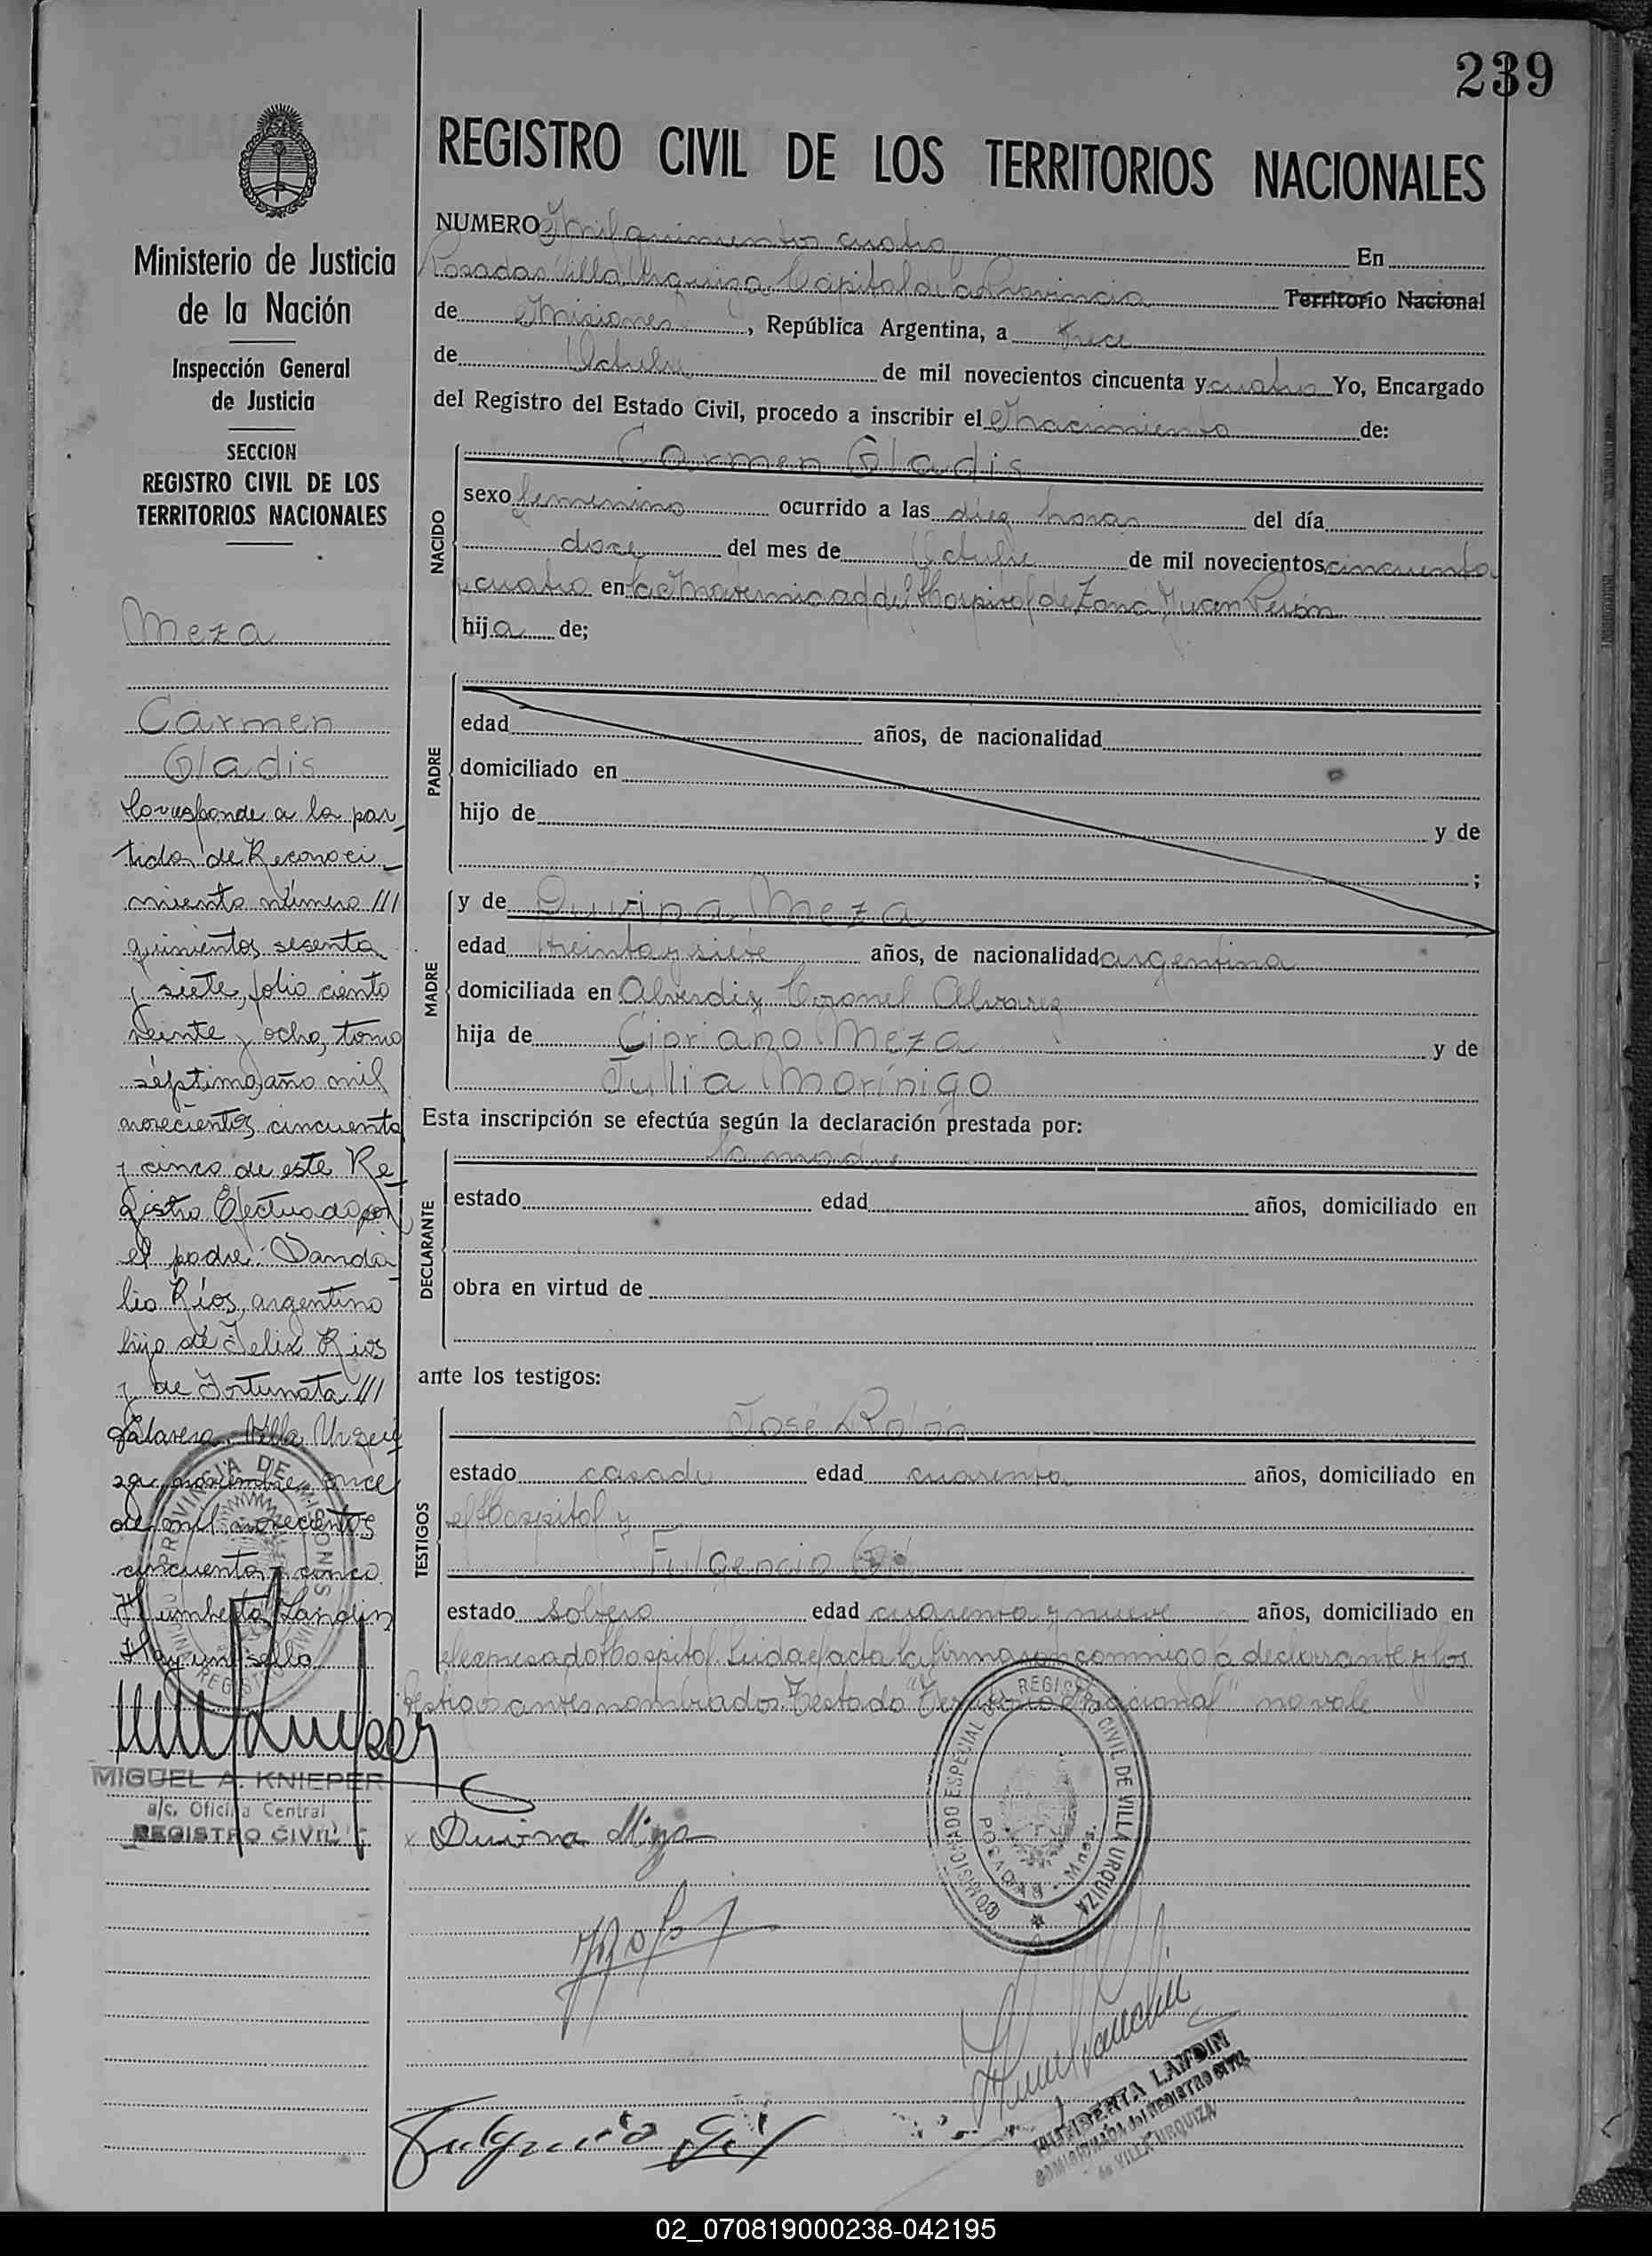 239
REGISTRO CIVIL DE LOS TERRITORIOS NACIONALES
Ministerio de Justicia
de la Nación
Inspección General
de Justicia
SECCION
REGISTRO CIVIL DE LOS
TERRITORIOS NACIONALES
Meza
Carmen
Gladis
Corresponde a la par-
tida de Reconoci-
miento número ///
quinientos sesenta
y siete, folio ciento
veinte y ocho, tomo
séptimo, año mil
novecientos cincuenta
y cinco de este Re-
gistro. Efectuado por
el padre: Danda-
lio Ríos, argentino
hijo de Felix Rios
y de Fortunata ///
Galarera. Villa Urqui-
za, noviembre once
de mil novecientos
cincuenta y cinco.
Humberta Landin
Hay un sello
PROVINCIA DE MISIONES
MIGUEL A. KNIEPER
a/c. Oficina Central
REGISTRO CIVIL
NUMERO Mil quinientos cuatro En
Posadas Villa Urquiza Capital de la Provincia Territorio Nacional
de Misiones, República Argentina, a trece
de Octubre de mil novecientos cincuenta y cuatro Yo, Encargado
del Registro del Estado Civil, procedo a inscribir el Nacimiento de:
NACIDO
Carmen Gladis
sexo femenino ocurrido a las diez horas del día
doce del mes de Octubre de mil novecientos cincuenta
y cuatro en la Maternidad del Hospital de Zona Juan Perón
hija de;
PADRE
edad años, de nacionalidad
domiciliado en
hijo de y de
;
MADRE
y de Quirina Meza
edad treinta y siete años, de nacionalidad argentina
domiciliada en Alverdi y Coronel Alvarez
hija de Cipriano Meza y de
Julia Morínigo
Esta inscripción se efectúa según la declaración prestada por:
DECLARANTE
la madre
estado edad años, domiciliado en
obra en virtud de
ante los testigos:
TESTIGOS
José Rolón
estado casado edad cuarenta años, domiciliado en
el Hospital y
Fulgencio Gil
estado soltero edad cuarenta y nueve años, domiciliado en
el expresado Hospital. Leida el acta la firmaron conmigo la declarante y los
testigos antes nombrados. Testado "Territorio Nacional" no vale
COMISIONADO ESPECIAL DEL REGISTRO CIVIL DE VILLA URQUIZA
POSADAS - Mnes.
Quirina Meza
Fulgencio Gil
HUMBERTA LANDIN
COMISIONADA del REGISTRO CIVIL
de VILLA URQUIZA
02_070819000238-042195